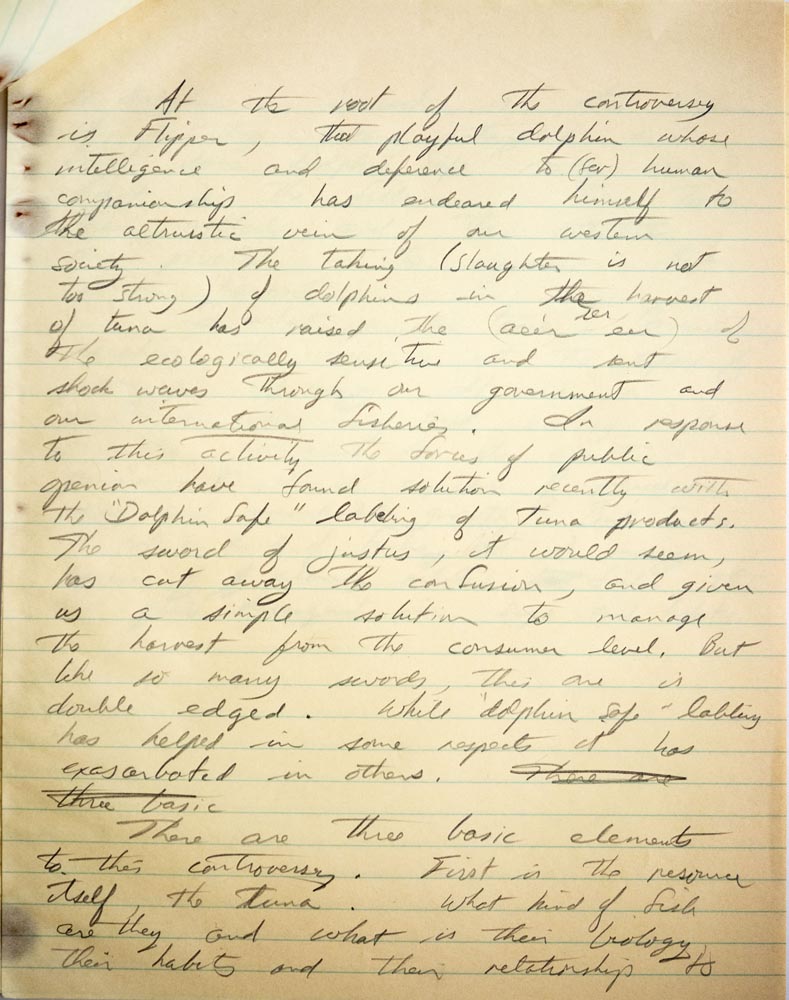 At the root of the controversy
is Flipper, that playful dolphin whose
intelligence and deference to (for) human
companionship has endeared himself to
the altruistic vein of our western
society. The taking (slaughter is not
too strong) of dolphins in the harvest
of tuna has raised the of
the ecologically sensitive and sent
shock waves through our government and
our international fisheries. In response
to this activity the forces of public
openion have found solution recently with
the "Dolphin Safe" labeling of Tuna products.
The sword of justus, it would seem,
has cut away the confusion, and given
us a simple solution to manage
the harvest from the consumer level. But
like so many swords, this one is
double edged. While "dolphin safe" labling
has helped in some respects it has
exasarbated in others. There are
three basic
There are three basic elements
to this controversy. First is the resource
itself, the tuna. What kind of fish
are they and what is their biology,
their habits and their relationship to